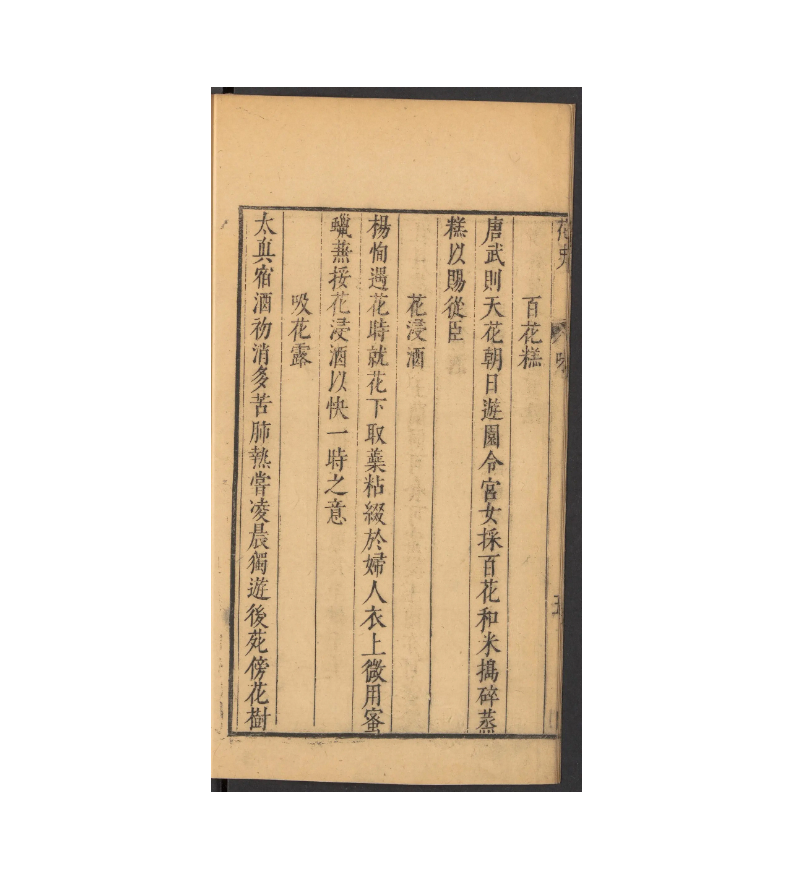 百花糕
唐武則天花朝日遊園令宮女採百花和米搗碎蒸
糕以賜從臣
花浸酒
楊恂遇花時就花下取蘂粘綴於婦人衣上微用蜜
蠟兼挼花浸酒以快一時之意
吸花露
太真宿酒初消多苦肺熱嘗凌晨獨遊後苑傍花樹